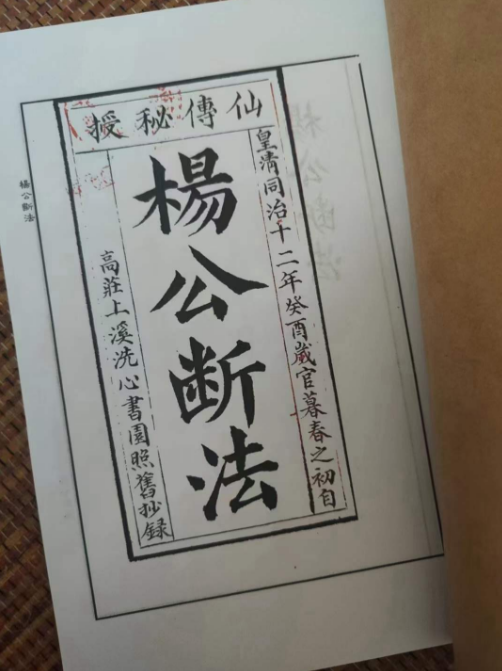 仙傳秘授
皇清同治十二年癸酉歲官暮春之初自
楊公断法
高莊上溪洗心書園照舊抄録
楊公斷法